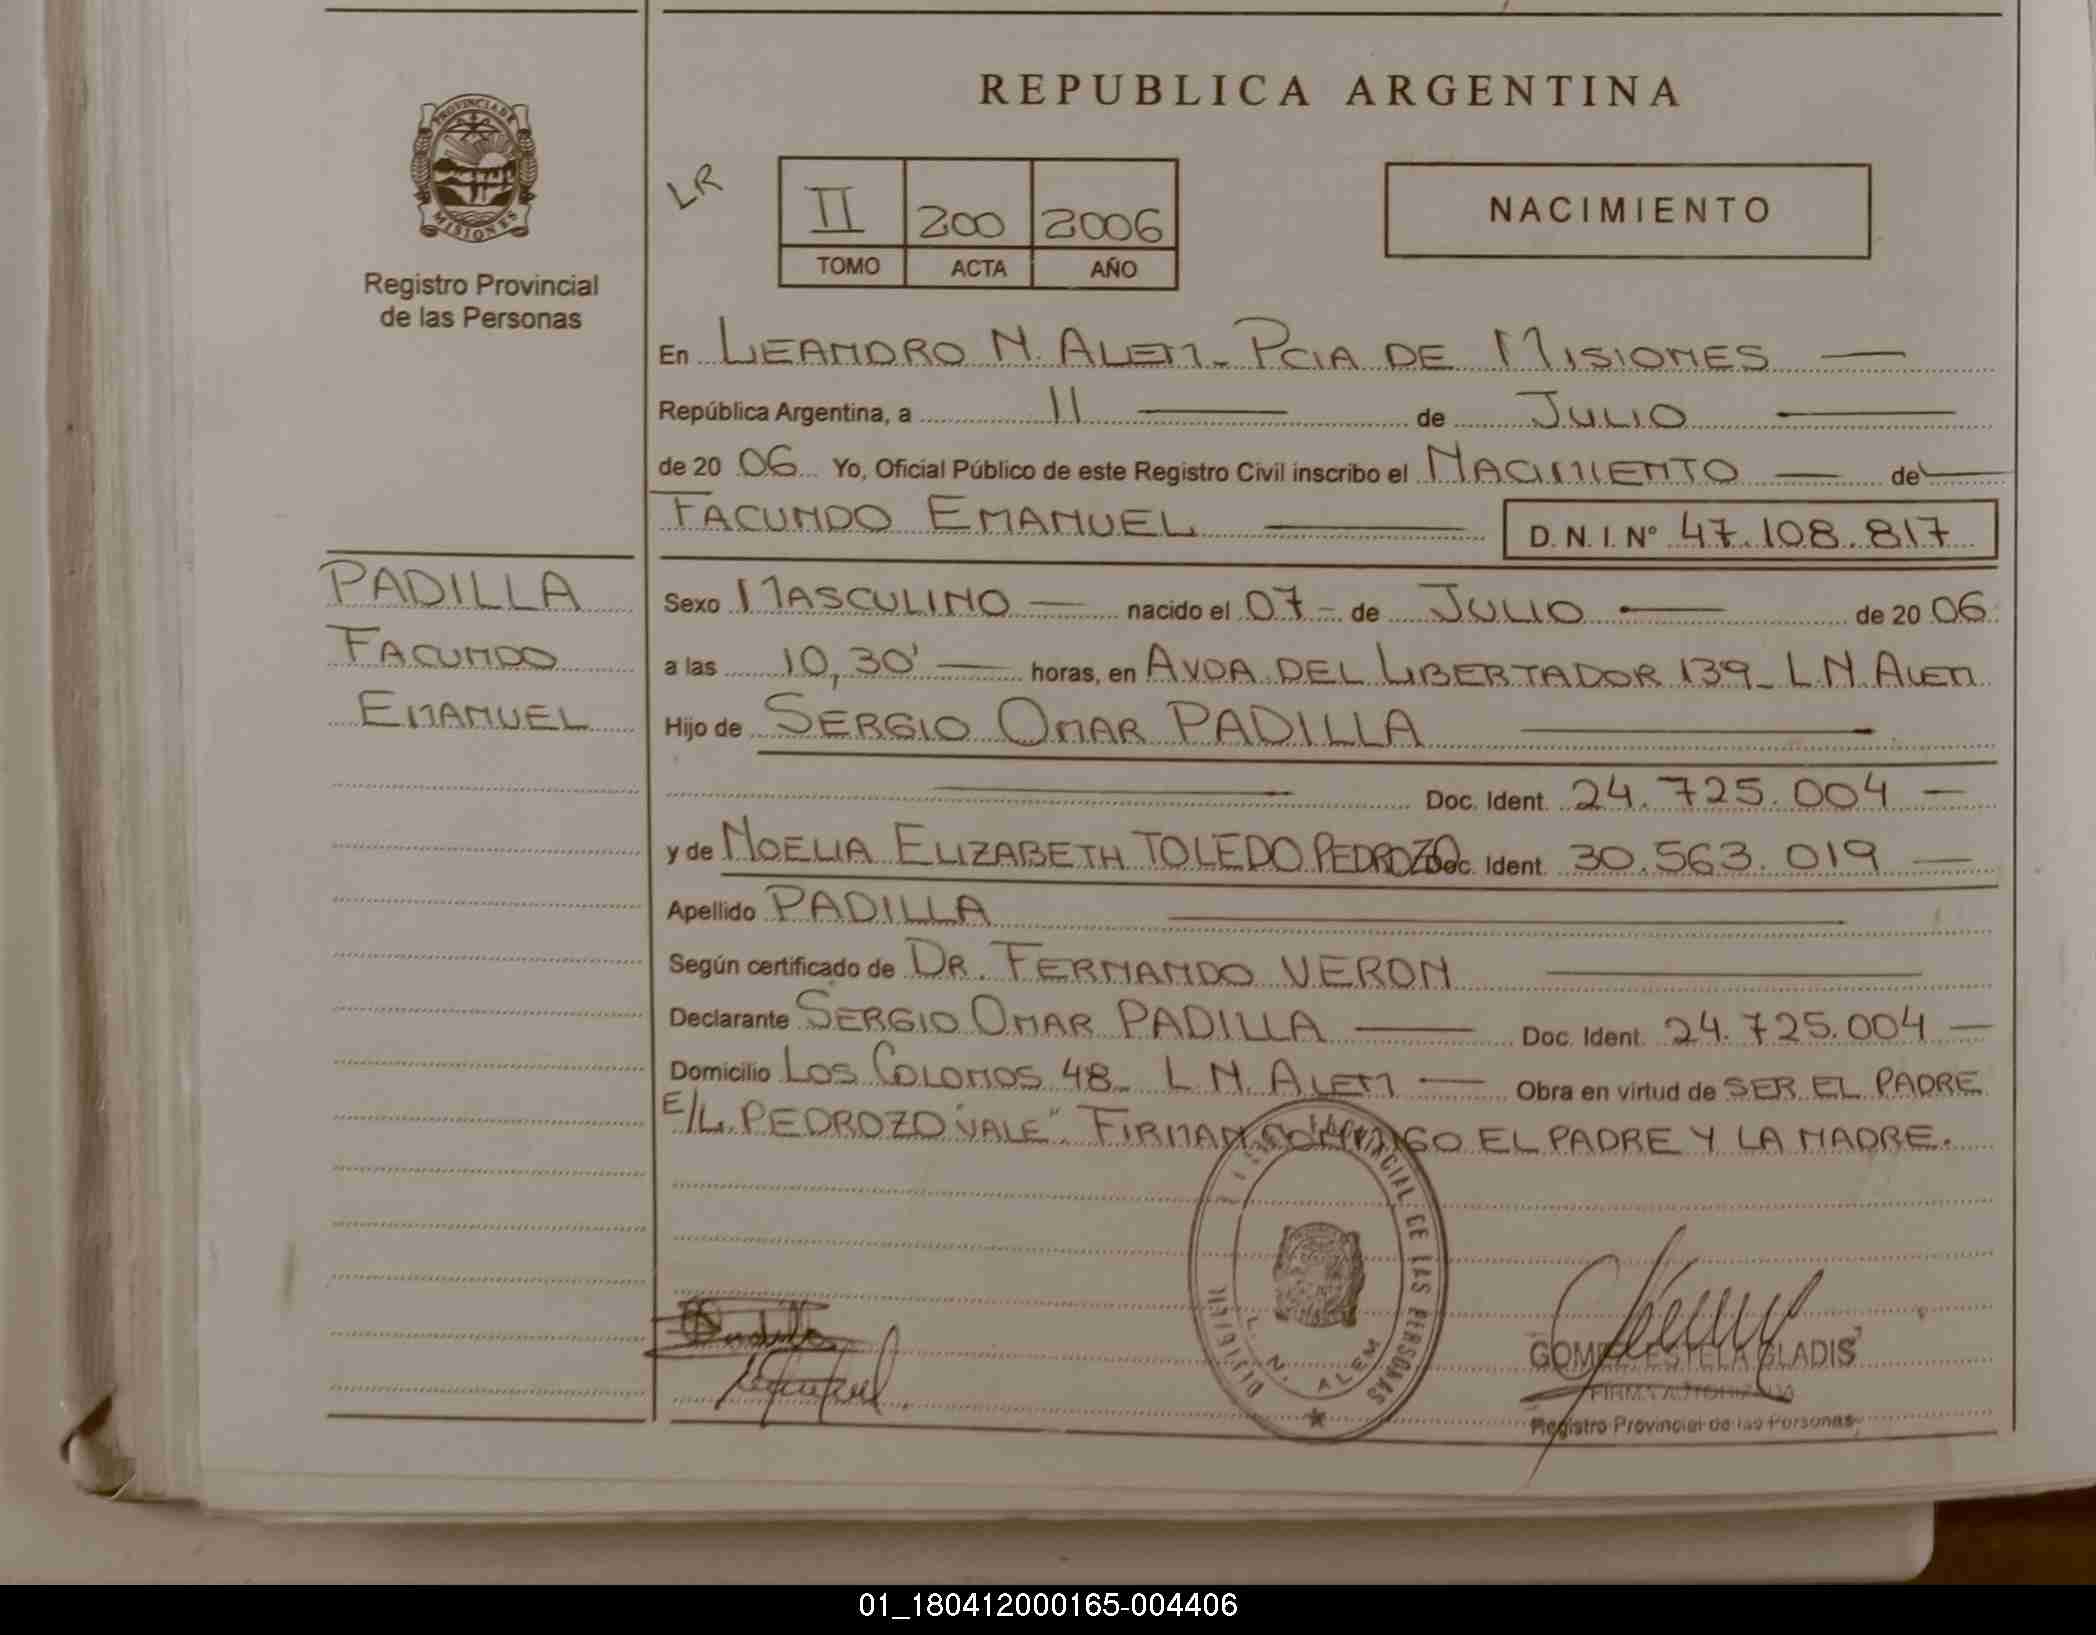 PROVINCIA DE
MISIONES
Registro Provincial
de las Personas
REPUBLICA ARGENTINA
LR
II 200 2006
TOMO ACTA AÑO
NACIMIENTO
En LEANDRO N. ALEM - PCIA DE MISIONES
República Argentina, a 11 de JULIO
de 20 06 Yo, Oficial Público de este Registro Civil inscribo el NACIMIENTO de
FACUNDO EMANUEL D.N.I. Nº 47.108.817
PADILLA
FACUNDO
EMANUEL
Sexo MASCULINO nacido el 07 - de JULIO de 20 06
a las 10,30' horas, en AVDA DEL LIBERTADOR 139 - L N ALEM
Hijo de SERGIO OMAR PADILLA
Doc. Ident. 24.725.004
y de NOELIA ELIZABETH TOLEDO PEDROZO Doc. Ident. 30.563.019
Apellido PADILLA
Según certificado de DR. FERNANDO VERON
Declarante SERGIO OMAR PADILLA Doc. Ident. 24.725.004
Domicilio LOS COLONOS 48 - L N. ALEM Obra en virtud de SER EL PADRE
E/L. PEDROZO "VALE". FIRMAN CONMIGO EL PADRE Y LA MADRE.
PROVINCIAL DE LAS PERSONAS
L. N. ALEM
Padilla
GOMEZ ESTELA GLADIS
FIRMA AUTORIZADA
Registro Provincial de las Personas
01_180412000165-004406